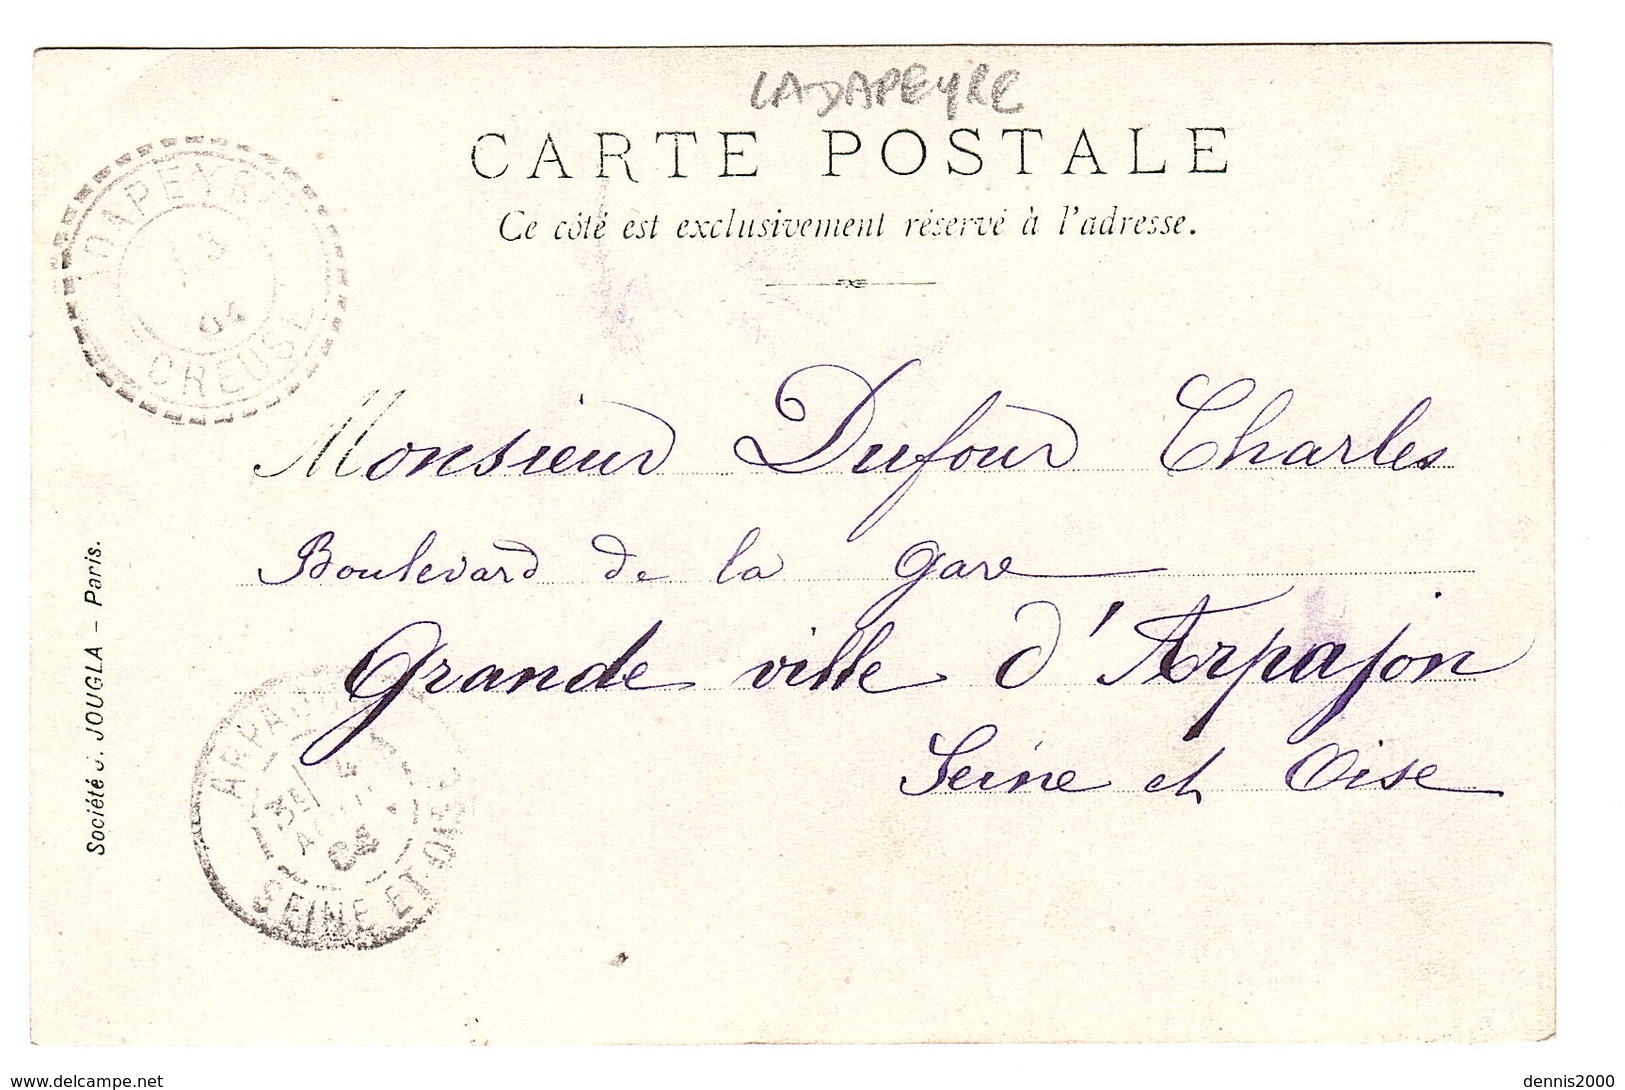 LADAPEYRE
CARTE POSTALE
Ce côté est exclusivement réservé à l'adresse.
LADAPEYRE
3
04
CREUSE
Monsieur Dufour Charles
Boulevard de la gare
Grande ville d'Arpajon
Seine et Oise
Société J. JOUGLA – Paris.
ARPAJON
04
SEINE ET OISE
delcampe.net
dennis2000